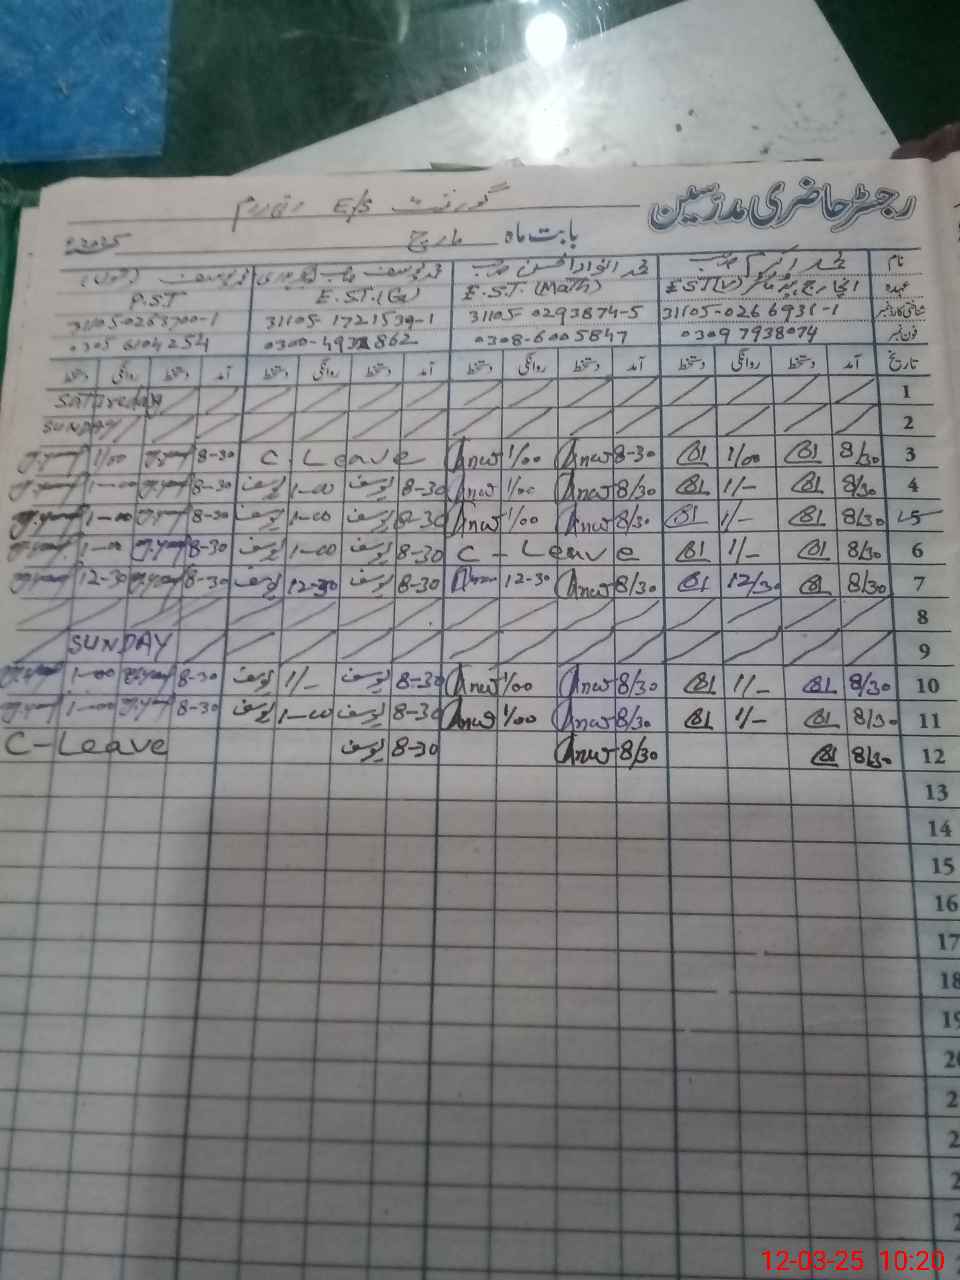 رجسٹر حاضری مدرسین
گورنمنٹ E/S
بابت ماہ مارچ 2025ء
نام محمد اکرم صاحب محمد انوار الحسن صاحب محمد یوسف صاحب محمد یوسف
عہدہ انچارج ہیڈ ماسٹر EST(V) E.S.T. (Math) E.S.T.(G) P.S.T
شناختی کارڈ نمبر 31105-0266931-1 31105-0293874-5 31105-1721539-1 31105-0263700-1
فون نمبر 03097938074 0308-6005847 0300-4931862 0305 6104254
تاریخ آمد دستخط روانگی دستخط آمد دستخط روانگی دستخط آمد دستخط روانگی دستخط آمد دستخط روانگی دستخط
1 Saturday
2 SUNDAY
3 8/30 1/00 8-30 Anw 1/00 Anw C. Leave 8-30 1/00
4 8/30 1/- Anw 8/30 1/00 8-30 یوسف 1-00 یوسف 8-30 1-00
5 8/30 1/- Anw 8/30 1/00 Anw 8-30 یوسف 1-00 یوسف 8-30 1-00
6 8/30 1/- C - Leave 8-30 یوسف 1-00 یوسف 8-30 1-00
7 8/30 12/30 Anw 8/30 12-30 8-30 یوسف 12-30 یوسف 8-30 12-30
8
9 SUNDAY
10 8/30 1/- Anw 8/30 1/00 Anw 8-30 یوسف 1/- یوسف 8-30 1-00
11 8/30 1/- Anw 8/30 1/00 Anw 8-30 یوسف 1-00 یوسف 8-30 1-00
12 8/30 Anw 8/30 8-30 یوسف C-Leave
13
14
15
16
17
18
12-03-25 10:20